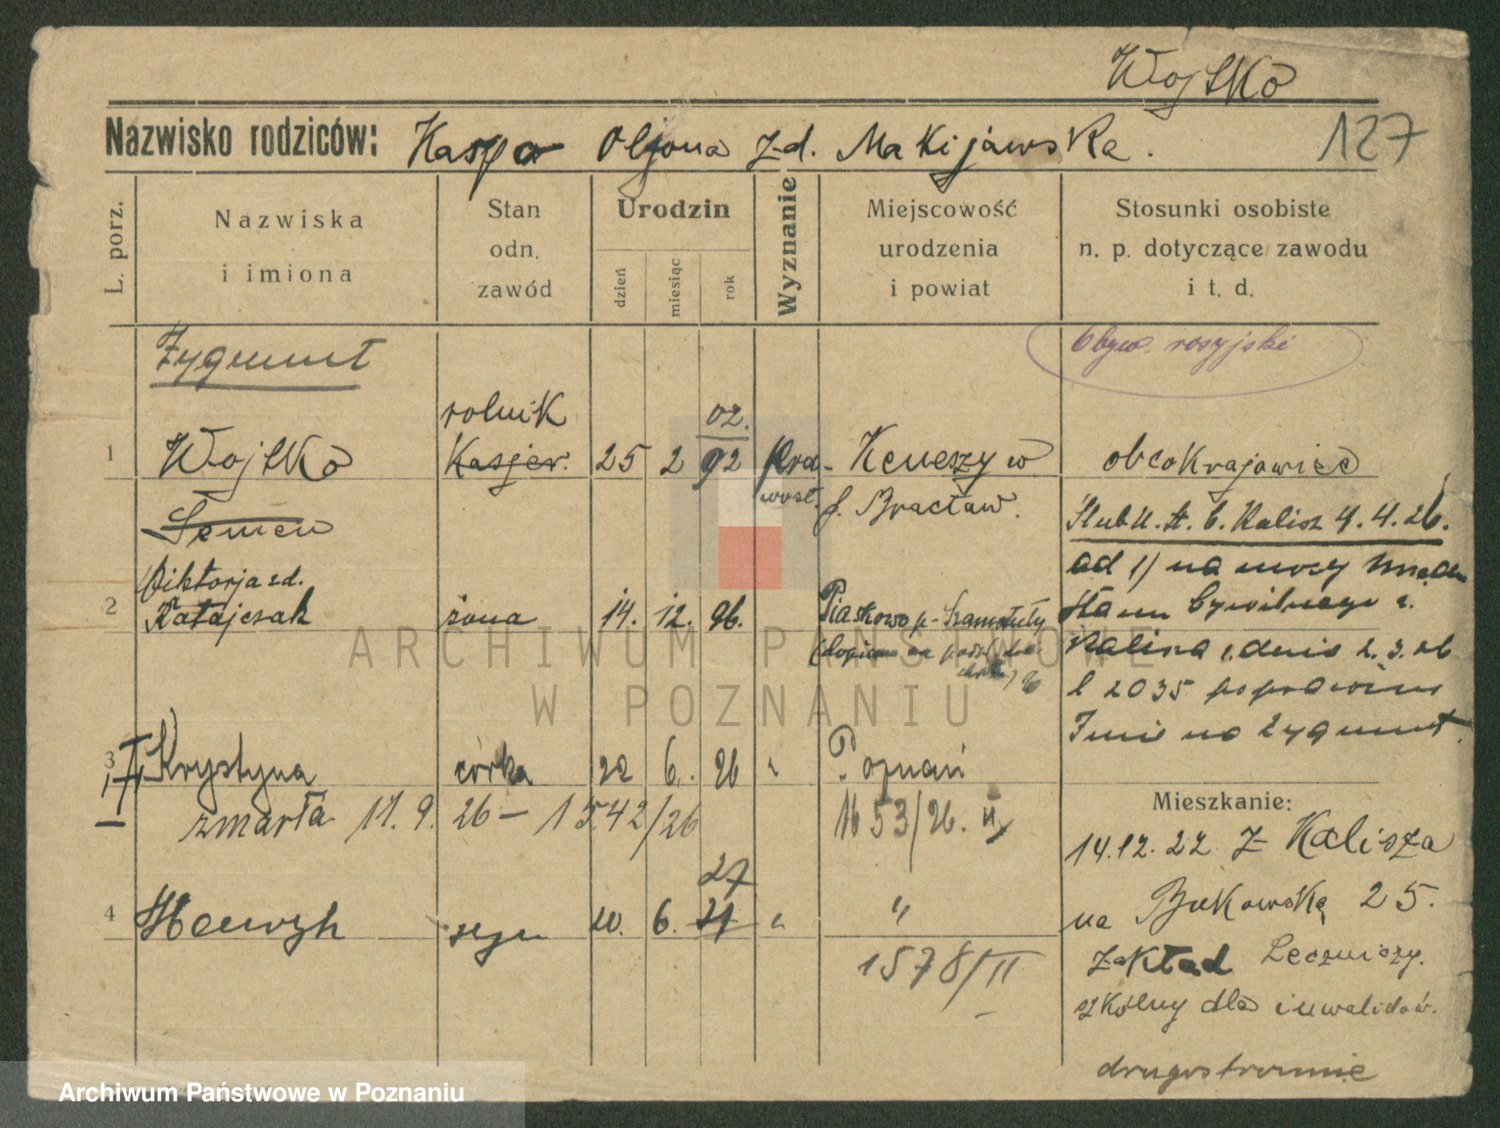 Wojtko
Nazwisko rodziców: Kaspo Oljona z-d. Makijawska. 127
L. porz.
Nazwiska
i imiona
Stan
odn.
zawód
Urodzin
dzień
miesiąc
rok
Wyznanie
Miejscowość
urodzenia
i powiat
Stosunki osobiste
n. p. dotyczące zawodu
i t. d.
Zygmunt
Obyw. rosyjski
rolnik
02.
1 Wojtko Kasjer. 25 2 92 Pra- obcokrajowiec
wosł.
Semen p. Bracław. Ślub U. St. C. Kalisz 4.4.26.
ad 1) na mocy
Wiktorja zd.
2 Ratajczak żona 14. 12. 96. Piaskowo p-Szamotuły
Stanu Cywilnego
Kalisza dnia 2.3.26
l 2035 poprawiono
Imie na Zygmunt.
3 Krystyna córka 22 6. 26 " Poznań
zmarła 17. 9. 26 – 1542/26 1653/26. II
Mieszkanie:
14.12.22 z Kalisza
27
4 Henryk syn 20. 6. 21 " "
na Bukowską 25.
1578/II
Zakład Leczniczy.
szkolny dla inwalidów.
drugostronnie
ARCHIWUM PAŃSTWOWE
W POZNANIU
Archiwum Państwowe w Poznaniu